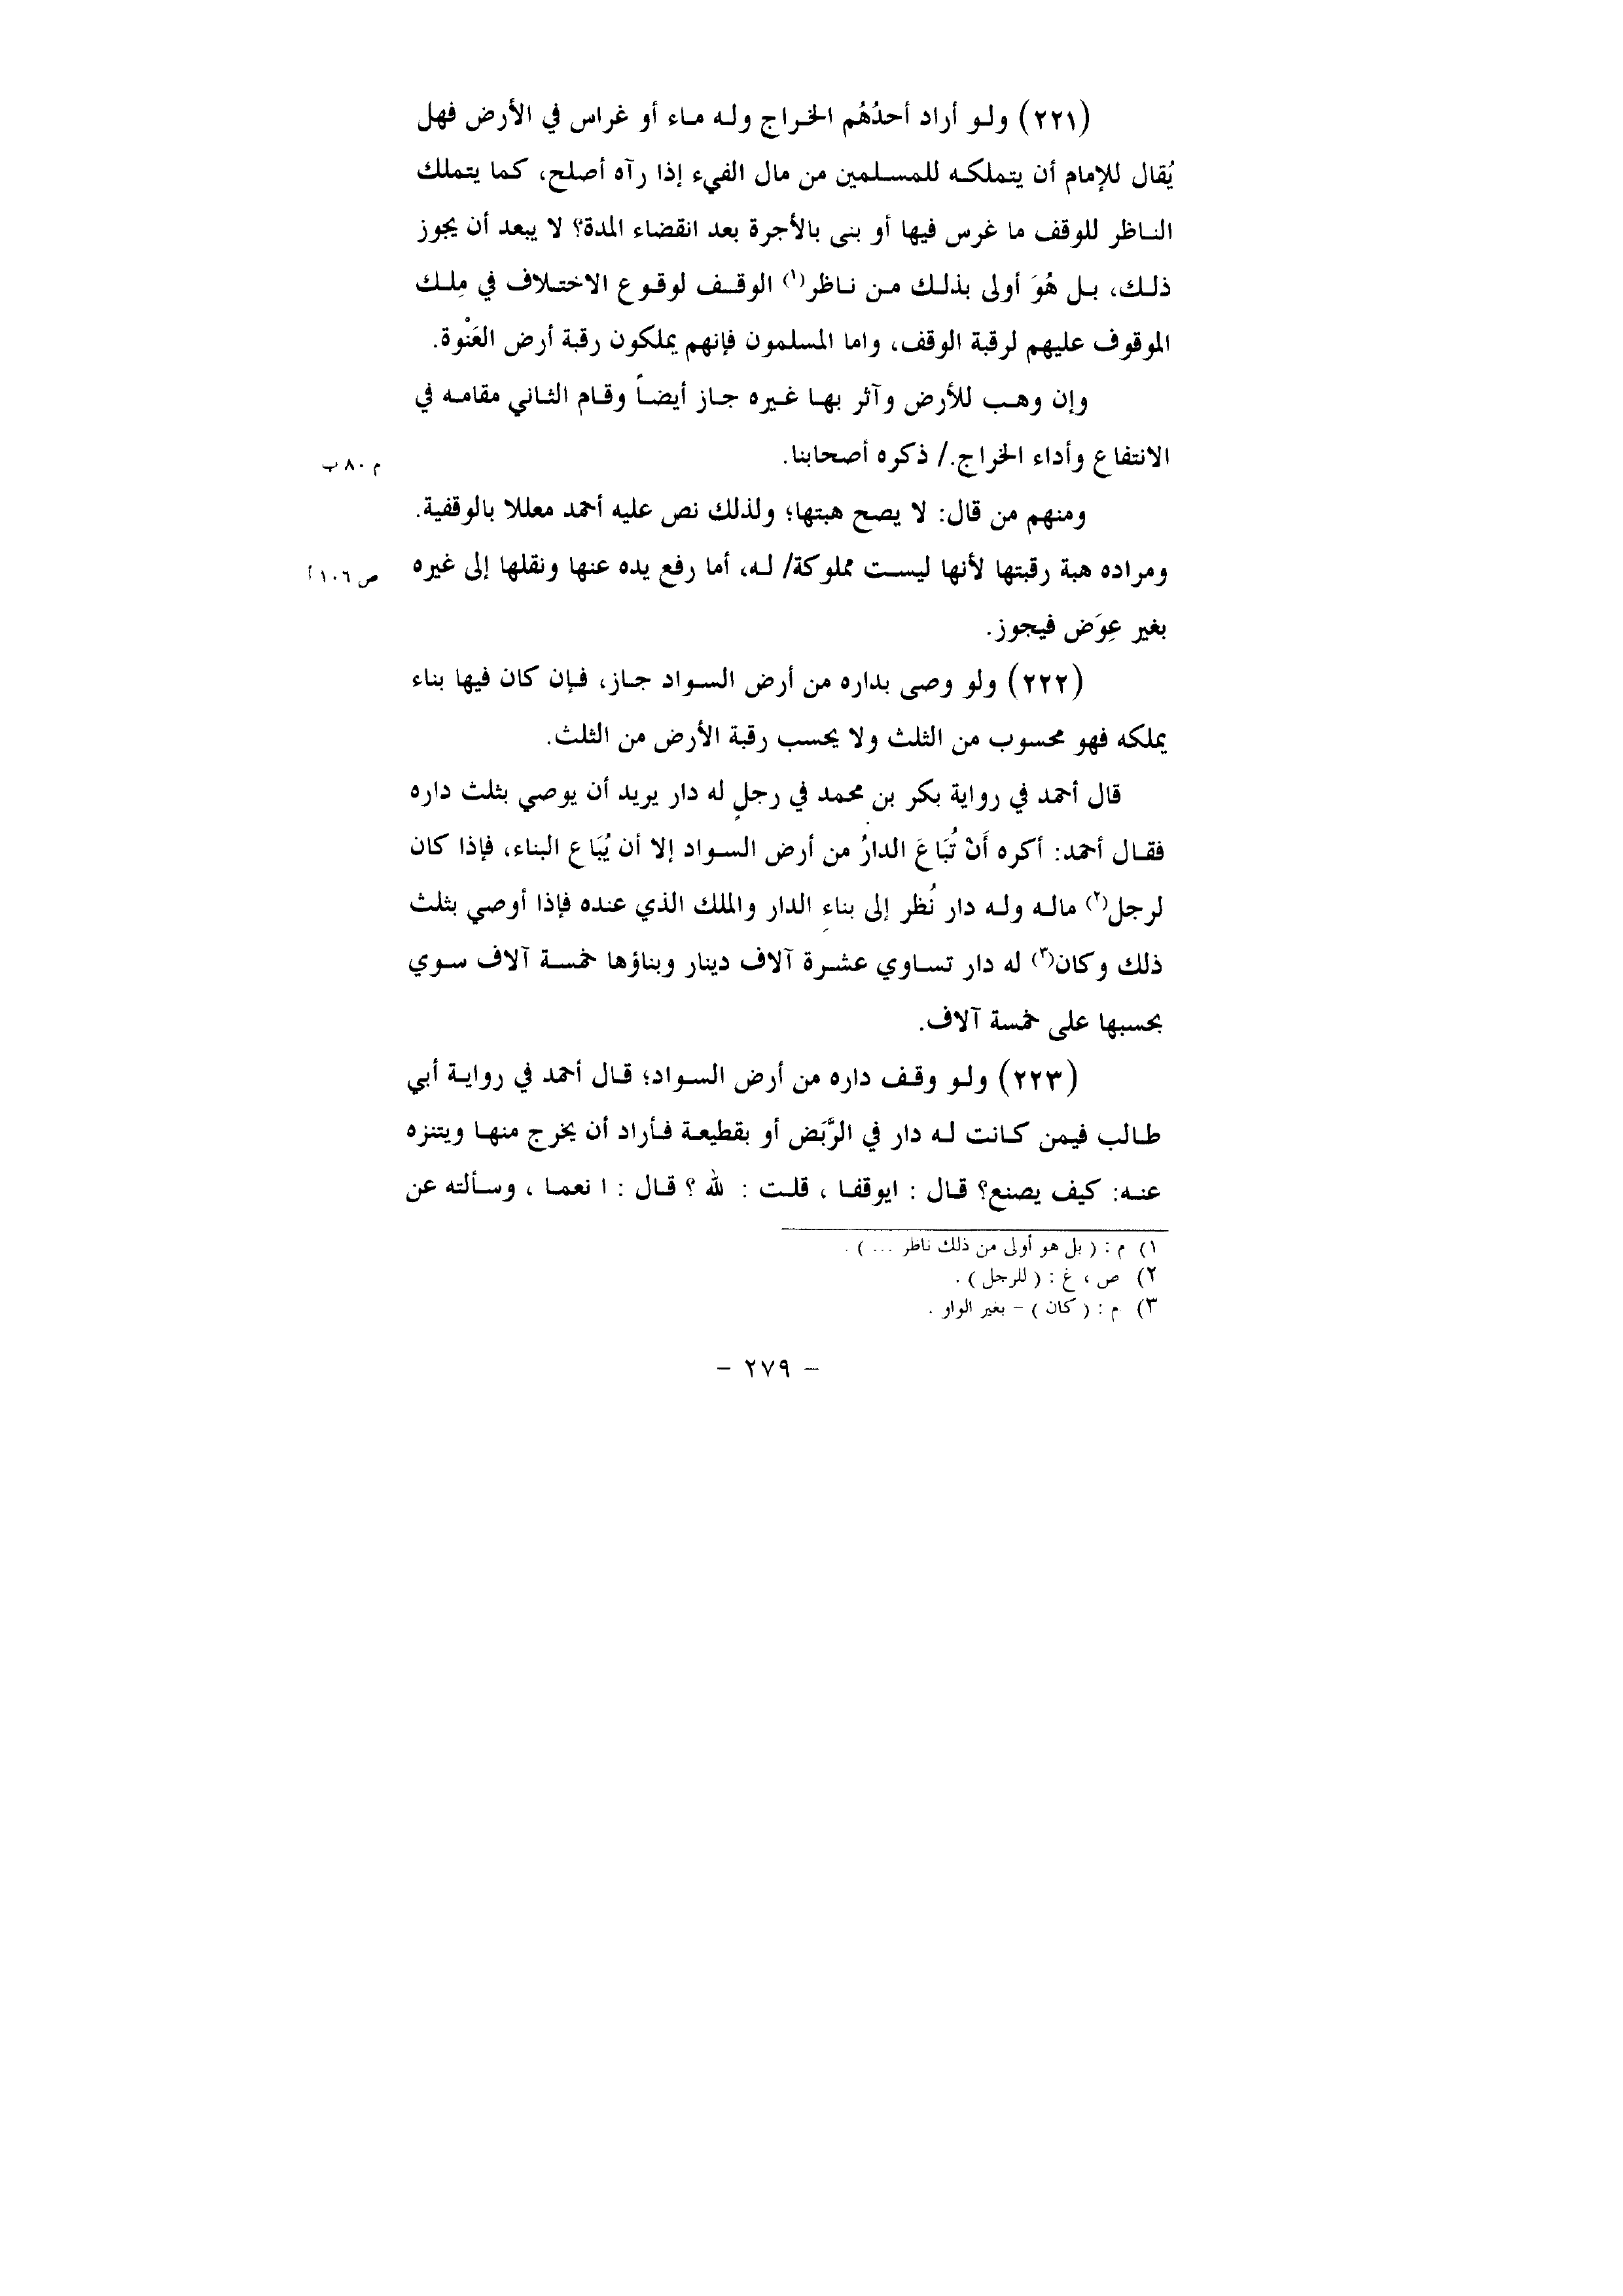 (٢٢١) ولو أراد أحدُهُم الخراج وله ماء أو غراس في الأرض فهل
يُقال للإمام أن يتملكه للمسلمين من مال الفيء إذا رآه أصلح، كما يتملك
الناظر للوقف ما غرس فيها أو بنى بالأجرة بعد انقضاء المدة؟ لا يبعد أن يجوز
ذلك، بل هُوَ أولى بذلك من ناظر(١) الوقف لوقوع الاختلاف في مِلك
الموقوف عليهم لرقبة الوقف، واما المسلمون فإنهم يملكون رقبة أرض العَنْوة.
وإن وهب للأرض وآثر بها غيره جاز أيضاً وقام الثاني مقامه في
الانتفاع وأداء الخراج./ ذكره أصحابنا.
م ٨٠ ب
ومنهم من قال: لا يصح هبتها؛ ولذلك نص عليه أحمد معللا بالوقفية.
ومراده هبة رقبتها لأنها ليست مملوكة/ له، أما رفع يده عنها ونقلها إلى غيره
ص ١٠٦ أ
بغير عِوَض فيجوز.
(٢٢٢) ولو وصى بداره من أرض السواد جاز، فإن كان فيها بناء
يملكه فهو محسوب من الثلث ولا يحسب رقبة الأرض من الثلث.
قال أحمد في رواية بكر بن محمد في رجلٍ له دار يريد أن يوصي بثلث داره
فقال أحمد: أكره أَنْ تُبَاعَ الدارُ من أرض السواد إلا أن يُبَاع البناء، فإذا كان
لرجل(٢) ماله وله دار نُظر إلى بناءِ الدار والملك الذي عنده فإذا أوصي بثلث
ذلك وكان(٣) له دار تساوي عشرة آلاف دينار وبناؤها خمسة آلاف سوي
بحسبها على خمسة آلاف.
(٢٢٣) ولو وقف داره من أرض السواد؛ قال أحمد في رواية أبي
طالب فيمن كانت له دار في الرَّبَض أو بقطيعة فأراد أن يخرج منها ويتنزه
عنه: كيف يصنع؟ قال : ايوقفا ، قلت : لله ؟ قال : ا نعما ، وسألته عن
١) م : ( بل هو أولى من ذلك ناظر ... ) .
٢) ص ، غ : ( للرجل ) .
٣) م : ( كان ) – بغير الواو .
– ٢٧٩ –